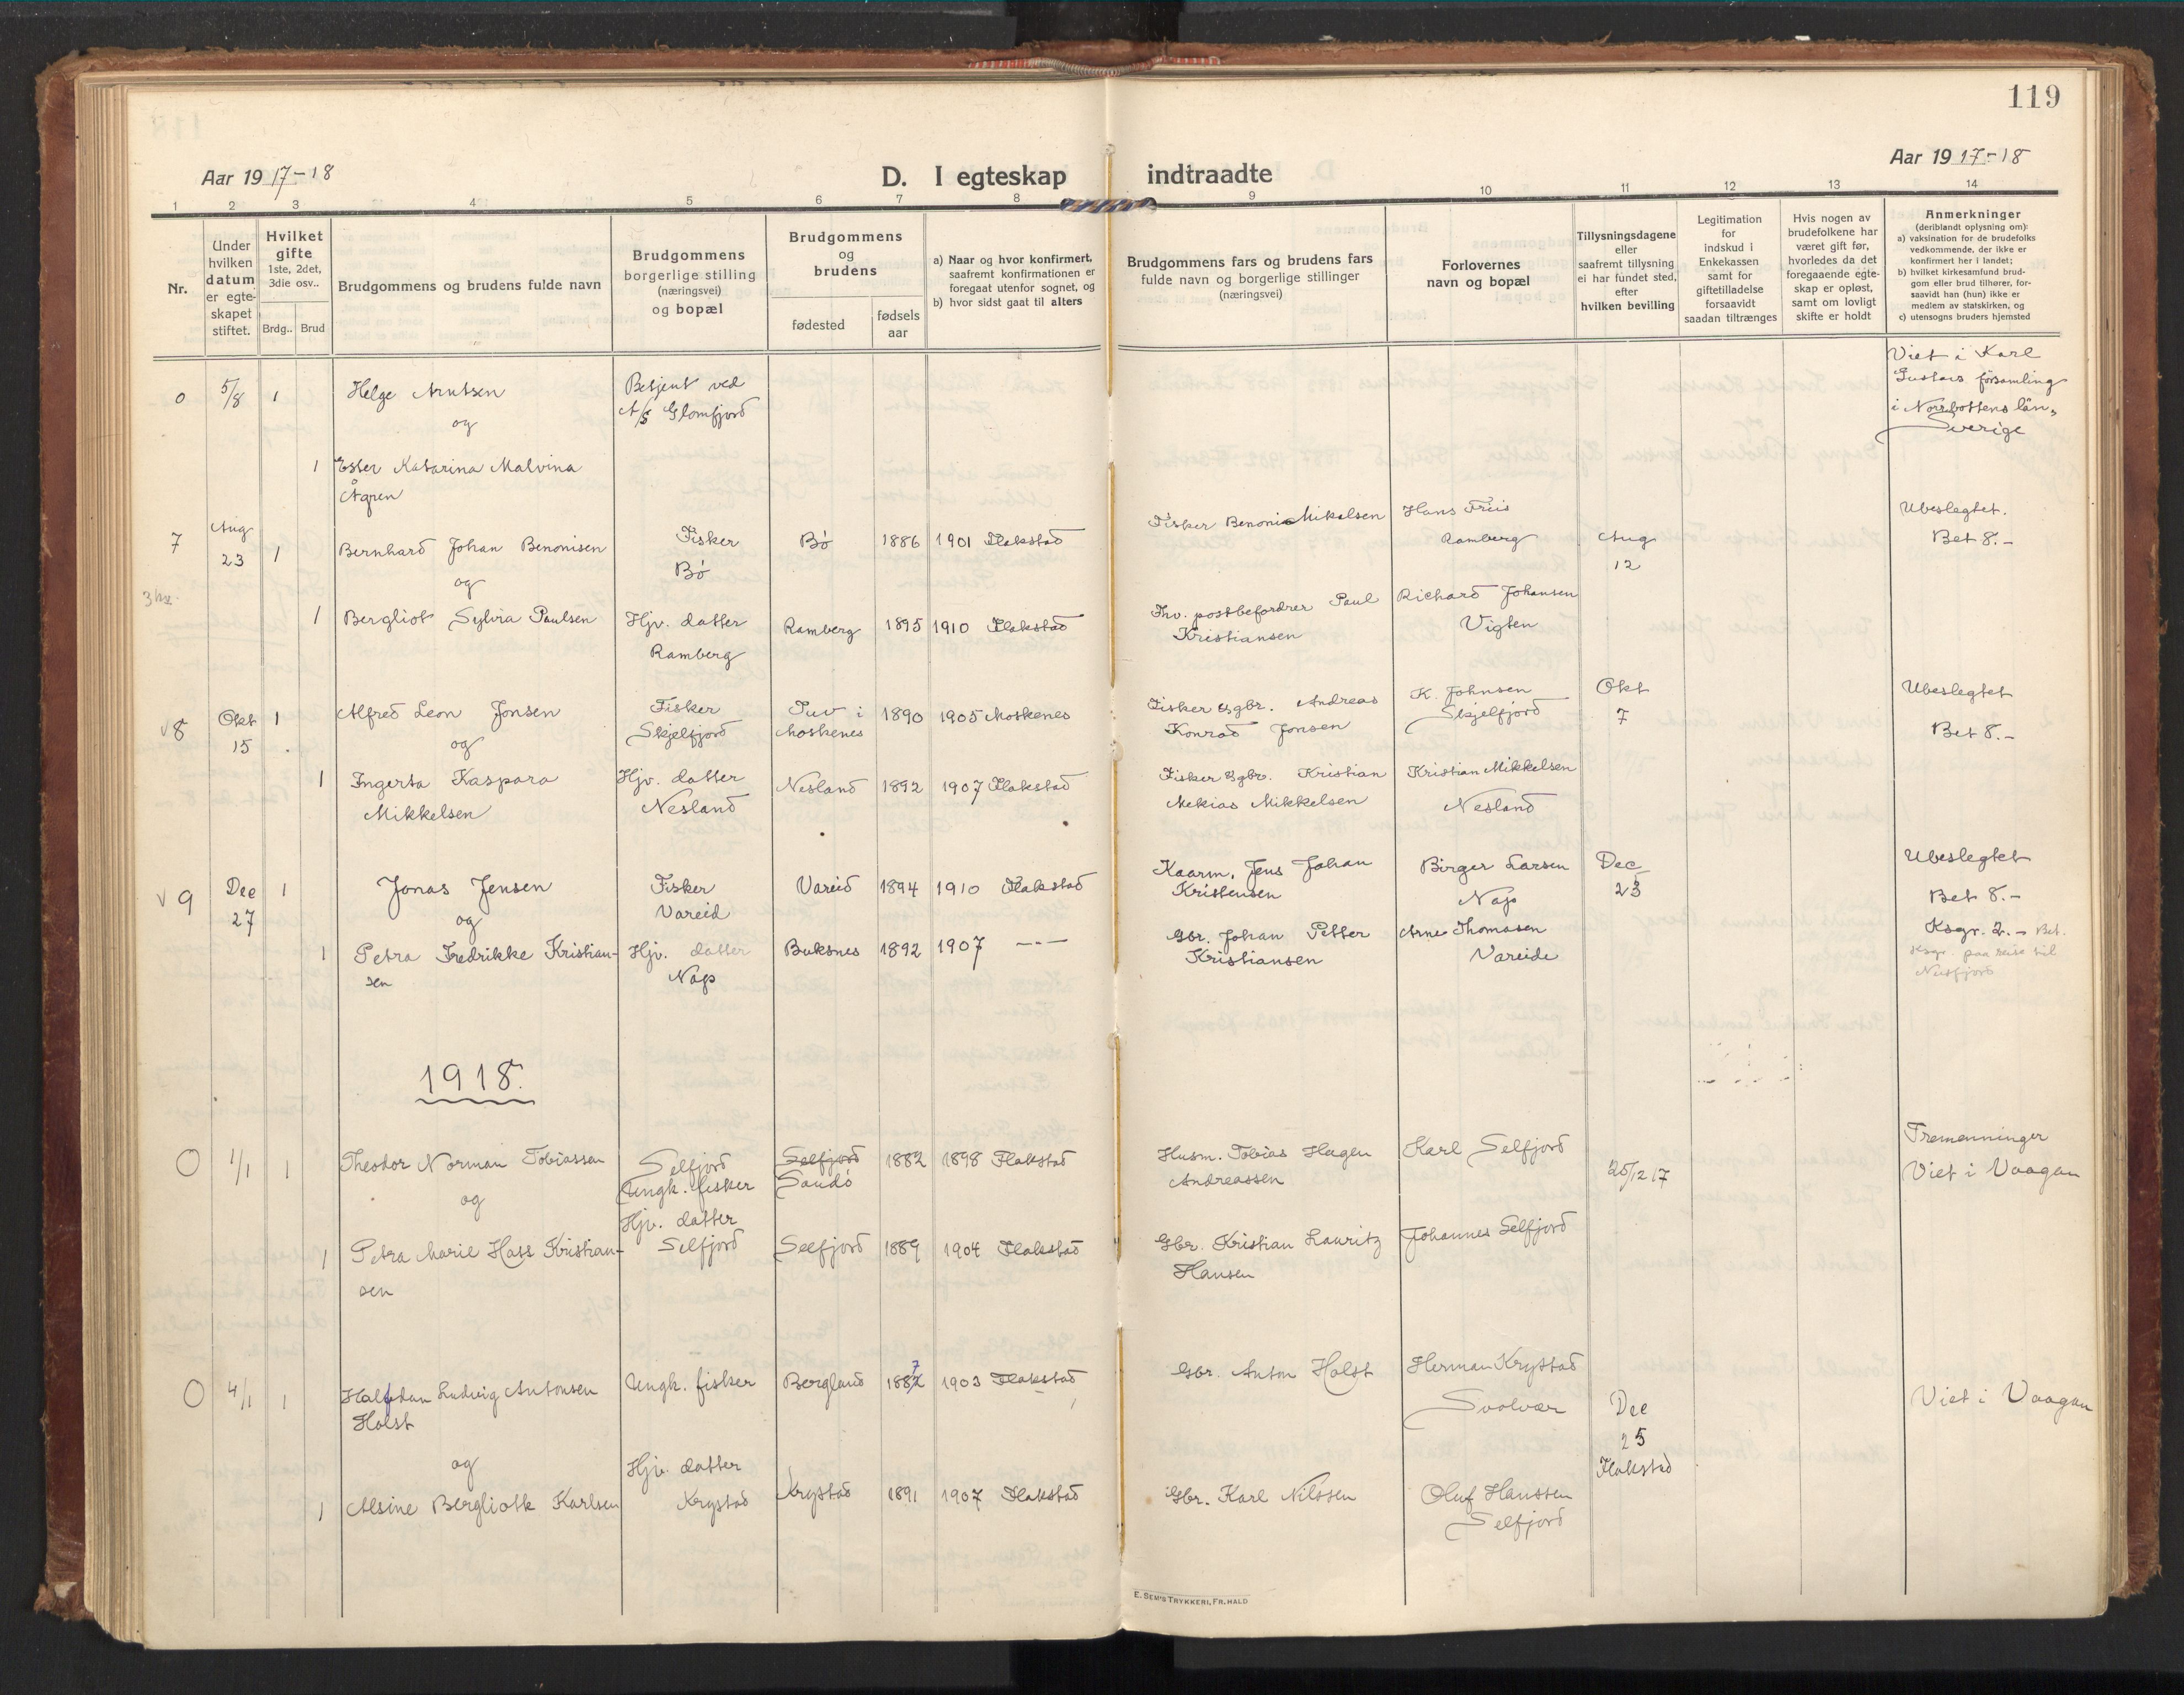 119
Aar 1917-18
D. I egteskap indtraadte
Aar 1917-18
1 2 3 4 5 6 7 8 9 10 11 12 13 14
Nr.
Under
hvilken
datum
er egte-
skapet
stiftet.
Hvilket
gifte
1ste, 2det,
3die osv..
Brdg.. Brud
Brudgommens og brudens fulde navn
Brudgommens
borgerlige stilling
(næringsvei)
og bopæl
Brudgommens
og
brudens
fødested
fødsels
aar
a) Naar og hvor konfirmert,
saafremt konfirmationen er
foregaat utenfor sognet, og
b) hvor sidst gaat til alters
Brudgommens fars og brudens fars
fulde navn og borgerlige stillinger
(næringsvei)
Forlovernes
navn og bopæl
Tillysningsdagene
eller
saafremt tillysning
ei har fundet sted,
efter
hvilken bevilling
Legitimation
for
indskud i
Enkekassen
samt for
giftetilladelse
forsaavidt
saadan tiltrænges
Hvis nogen av
brudefolkene har
været gift før,
hvorledes da det
foregaaende egte-
skap er opløst,
samt om lovligt
skifte er holdt
Anmerkninger
(deriblandt oplysning om):
a) vaksination for de brudefolks
vedkommende, der ikke er
konfirmert her i landet;
b) hvilket kirkesamfund brud-
gom eller brud tilhører, for-
saavidt han (hun) ikke er
medlem av statskirken, og
c) utensogns bruders hjemsted
0 5/8 1 Helge Arntsen
og
Betjent ved
A/S Glomfjord
Viet i Karl
Gustavs församling
i Norrbottens län,
Sverige
1 Ester Katarina Malvina
Ågren
7 Aug
23 1 Bernhard Johan Benonisen
og
Fisker
Bø
Bø 1886 1901 Flakstad
Fisker Benoni Mikalsen
Hans Freis
Ramberg
Aug
12
Ubeslegtet.
Bet 8.-
1 Bergliot Sylvia Paulsen
Hjv. datter
Ramberg
Ramberg 1895 1910 Flakstad
Fhv. postbefordrer Paul
Kristiansen
Richard Johansen
Vigten
v8 Okt
15 1 Alfred Leon Jonsen
og
Fisker
Skjelfjord
Tuv i
Moskenes
1890 1905 Moskenes
Fisker & gbr. Andreas
Konrad Jonsen
K. Johnsen
Skjelfjord
Okt
7
Ubeslegtet
Bet 8.-
1 Ingerta Kaspara
Mikkelsen
Hjv. datter
Nesland
Nesland 1892 1907 Flakstad
Fisker & gbr. Kristian
Mekias Mikkelsen
Kristian Mikkelsen
Nesland
v 9 Dec
27 1 Jonas Jensen
og
Fisker
Vareid
Vareid 1894 1910 Flakstad
Kaarm. Jens Johan
Kristensen
Birger Larsen
Nap
Dec
23
Ubeslegtet
Bet 8.-
Ksgr. 2.- Bet.
Ksgr. paa reise til
Nusfjord
1 Petra Fredrikke Kristian-
sen
Hjv. datter
Nap
Buksnes 1892 1907 —"—
Gbr. Johan Petter
Kristiansen
Arne Thomasen
Vareide
1918.
0 1/1 1 Theodor Norman Tobiassen
og
Selfjord
Ungk. fisker
Selfjord
Sandø
1882 1898 Flakstad
Husm. Tobias Hagen
Andreassen
Karl Selfjord
25/12 17
Tremenninger
Viet i Vaagan
1 Petra Marie Hass Kristian-
sen
Hjv. datter
Selfjord
Selfjord 1889 1904 Flakstad
Gbr. Kristian Lauritz
Hansen
Johannes Selfjord
0 4/1 1 Halfdan Ludvig Antonsen
Holst
og
Ungk. fisker
Bergland 1887 1903 Flakstad
Gbr. Anton Holst
Herman Krystad
Svolvær
Dec
25
Flakstad
Viet i Vaagan
1 Alsine Bergliotk Karlsen
Hjv. datter
Krystad
Krystad 1891 1907 Flakstad
Gbr. Karl Nilssen
Oluf Hanssen
Selfjord
E. SEM'S TRYKKERI, FR. HALD